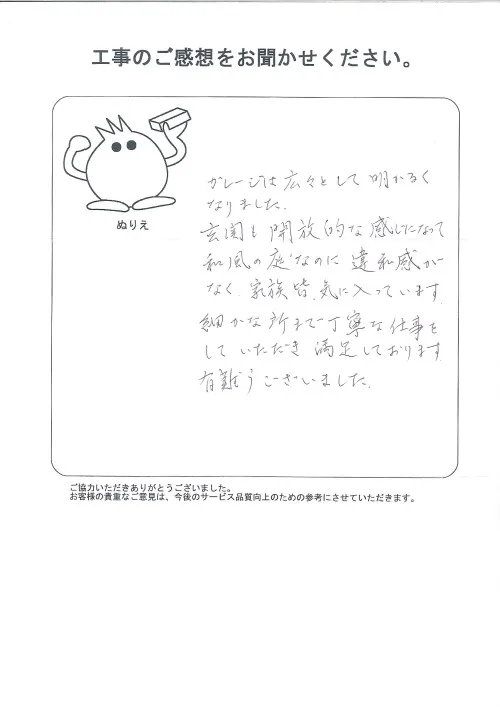 工事のご感想をお聞かせください。
ぬりえ
ガレージは広々として明かるく
なりました。
玄関も開放的な感じになって
和風の庭なのに違和感が
なく、家族皆、気に入っています。
細かな所まで丁寧な仕事を
していただき満足しております。
有難うございました。
ご協力いただきありがとうございました。
お客様の貴重なご意見は、今後のサービス品質向上のための参考にさせていただきます。